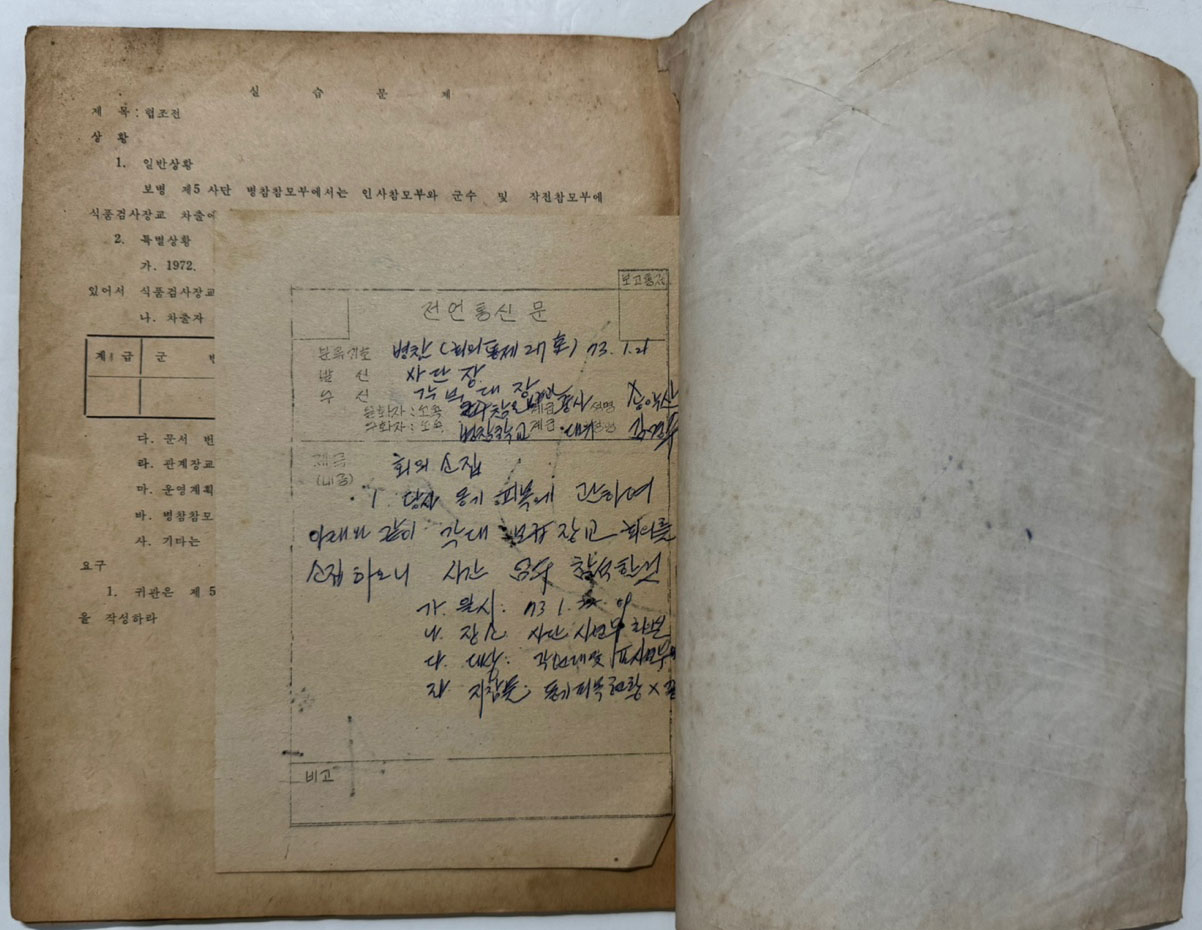 실 습 문 제
제 목 : 협조전
상 황
1. 일반상황
보병 제5사단 병참참모부에서는 인사참모부와 군수 및 작전참모부에
식품검사장교 차출에
2. 특별상황
가. 1972.
있어서 식품검사장교
나. 차출자
계 급 군 번
다. 문서 번
라. 관계장교
마. 운영계획
바. 병참참모
사. 기타는
요구
1. 귀관은 제 5
을 작성하라
보고통제
전언통신문
분류번호 병참 (회의통제 27호) 73. 1. 21
발 신 사단장
수 신 각 부대장
송화자 : 소속 계급 성명
수화자 : 소속 병참학교 계급 성명
제목 회의 소집
(내용)
1. 당사 동기 피복에 관하여
아래와 같이 각대 장교 회의를
소집하오니 시간 엄수 참석할것
가. 일시 : 73. 1.
나. 장소 사단
다. 대상 :
지참물 : 동기피복현황
비고